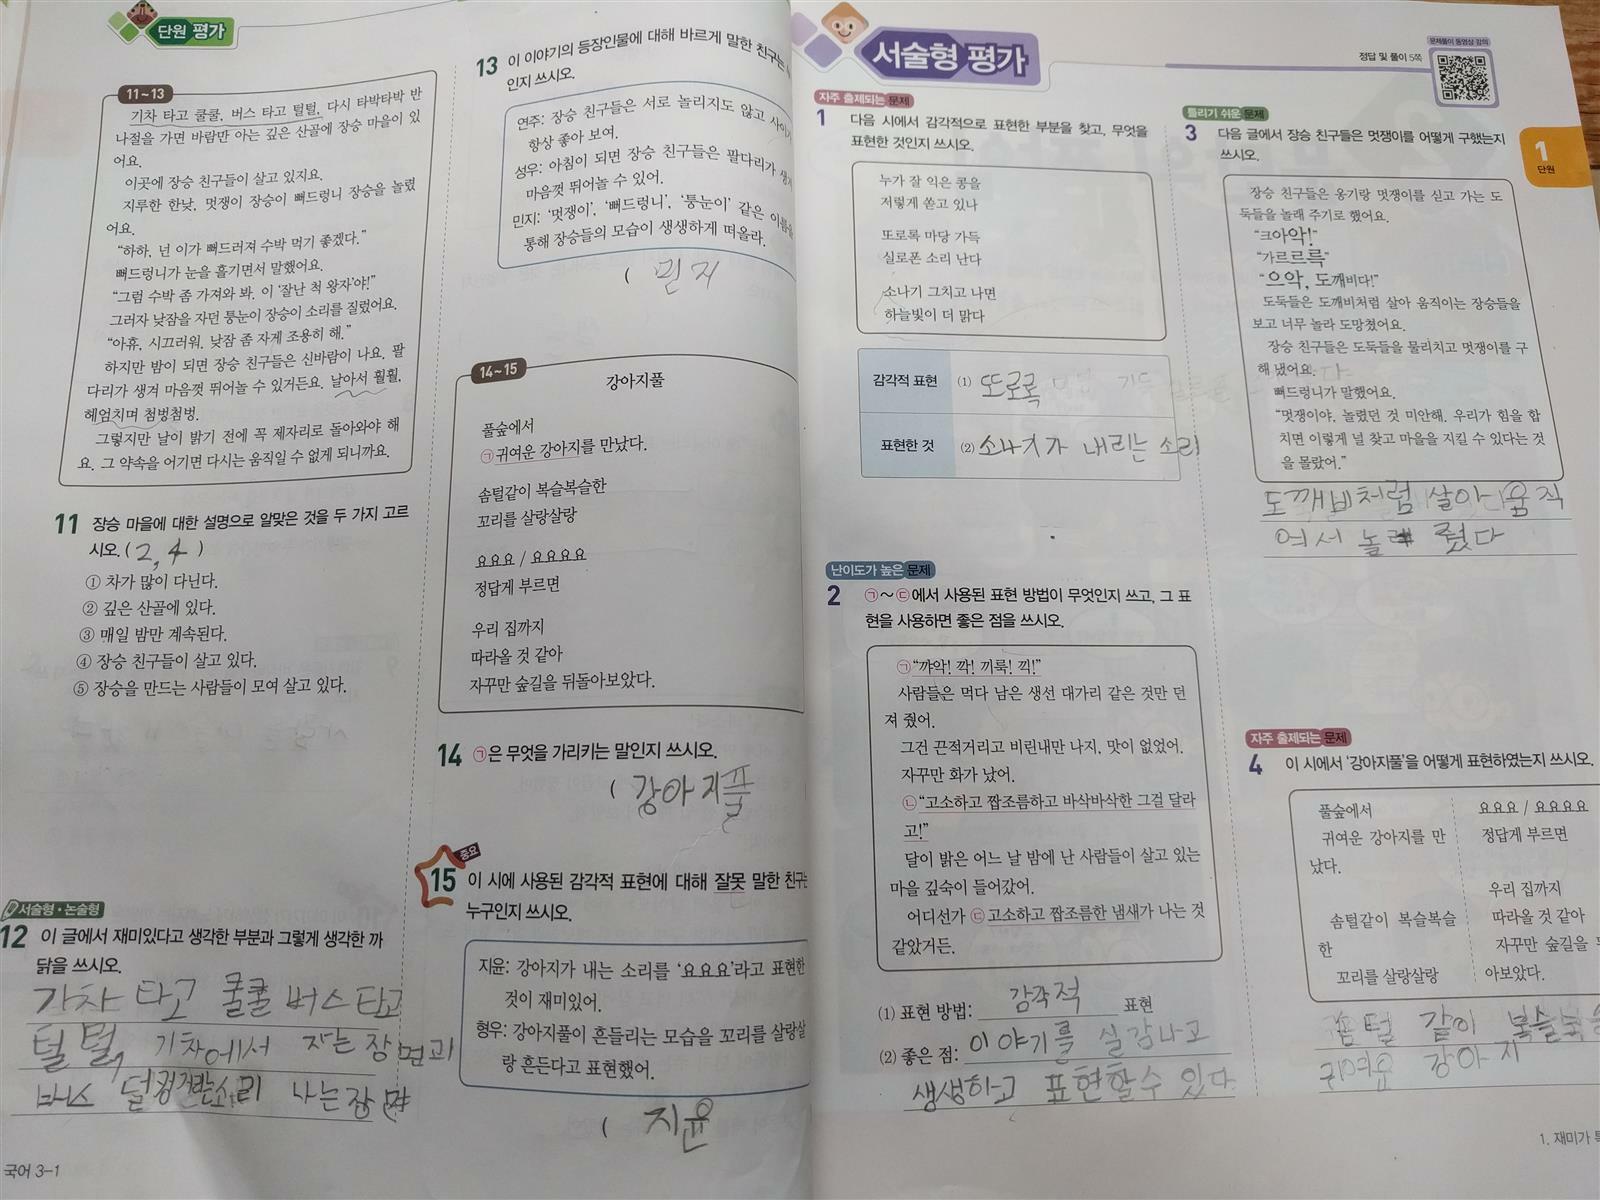 단원 평가
11~13
기차 타고 쿨쿨, 버스 타고 털털, 다시 타박타박 반
나절을 가면 바람만 아는 깊은 산골에 장승 마을이 있
어요.
이곳에 장승 친구들이 살고 있지요.
지루한 한낮, 멋쟁이 장승이 뻐드렁니 장승을 놀렸
어요.
"하하, 넌 이가 뻐드러져 수박 먹기 좋겠다."
뻐드렁니가 눈을 흘기면서 말했어요.
"그럼 수박 좀 가져와 봐. 이 '잘난 척 왕자'야!"
그러자 낮잠을 자던 퉁눈이 장승이 소리를 질렀어요.
"아휴, 시끄러워. 낮잠 좀 자게 조용히 해."
하지만 밤이 되면 장승 친구들은 신바람이 나요. 팔
다리가 생겨 마음껏 뛰어놀 수 있거든요. 날아서 훨훨,
헤엄치며 첨벙첨벙.
그렇지만 날이 밝기 전에 꼭 제자리로 돌아와야 해
요. 그 약속을 어기면 다시는 움직일 수 없게 되니까요.
11 장승 마을에 대한 설명으로 알맞은 것을 두 가지 고르
시오. ( 2, 4 )
① 차가 많이 다닌다.
② 깊은 산골에 있다.
③ 매일 밤만 계속된다.
④ 장승 친구들이 살고 있다.
⑤ 장승을 만드는 사람들이 모여 살고 있다.
서술형·논술형
12 이 글에서 재미있다고 생각한 부분과 그렇게 생각한 까
닭을 쓰시오.
기차 타고 쿨쿨 버스 타고
털털, 기차에서 자는 장면과
버스 덜컹거리는 소리 나는 장면
국어 3-1
13 이 이야기의 등장인물에 대해 바르게 말한 친구는
인지 쓰시오.
연주: 장승 친구들은 서로 놀리지도 않고 사이가
항상 좋아 보여.
성우: 아침이 되면 장승 친구들은 팔다리가 생겨
마음껏 뛰어놀 수 있어.
민지: '멋쟁이', '뻐드렁니', '퉁눈이' 같은 이름을
통해 장승들의 모습이 생생하게 떠올라.
( 민지
14~15
강아지풀
풀숲에서
㉠귀여운 강아지를 만났다.
솜털같이 복슬복슬한
꼬리를 살랑살랑
요요요 / 요요요요
정답게 부르면
우리 집까지
따라올 것 같아
자꾸만 숲길을 뒤돌아보았다.
14 ㉠은 무엇을 가리키는 말인지 쓰시오.
( 강아지풀
중요
15 이 시에 사용된 감각적 표현에 대해 잘못 말한 친구는
누구인지 쓰시오.
지윤: 강아지가 내는 소리를 '요요요'라고 표현한
것이 재미있어.
형우: 강아지풀이 흔들리는 모습을 꼬리를 살랑살
랑 흔든다고 표현했어.
( 지윤
서술형 평가
정답 및 풀이 5쪽
문제풀이 동영상 강의
1
단원
자주 출제되는 문제
1 다음 시에서 감각적으로 표현한 부분을 찾고, 무엇을
표현한 것인지 쓰시오.
누가 잘 익은 콩을
저렇게 쏟고 있나
또로록 마당 가득
실로폰 소리 난다
소나기 그치고 나면
하늘빛이 더 맑다
감각적 표현 (1) 또로록
표현한 것 (2) 소나기가 내리는 소리
난이도가 높은 문제
2 ㉠~㉢에서 사용된 표현 방법이 무엇인지 쓰고, 그 표
현을 사용하면 좋은 점을 쓰시오.
㉠"꺄악! 깍! 끼룩! 끽!"
사람들은 먹다 남은 생선 대가리 같은 것만 던
져 줬어.
그건 끈적거리고 비린내만 나지, 맛이 없었어.
자꾸만 화가 났어.
㉡"고소하고 짭조름하고 바삭바삭한 그걸 달라
고!"
달이 밝은 어느 날 밤에 난 사람들이 살고 있는
마을 깊숙이 들어갔어.
어디선가 ㉢고소하고 짭조름한 냄새가 나는 것
같았거든.
(1) 표현 방법: 감각적 표현
(2) 좋은 점: 이야기를 실감나고
생생하고 표현할수 있다
틀리기 쉬운 문제
3 다음 글에서 장승 친구들은 멋쟁이를 어떻게 구했는지
쓰시오.
장승 친구들은 옹기랑 멋쟁이를 싣고 가는 도
둑들을 놀래 주기로 했어요.
"크아악!"
"가르르륵"
"으악, 도깨비다!"
도둑들은 도깨비처럼 살아 움직이는 장승들을
보고 너무 놀라 도망쳤어요.
장승 친구들은 도둑들을 물리치고 멋쟁이를 구
해 냈어요.
뻐드렁니가 말했어요.
"멋쟁이야, 놀렸던 것 미안해. 우리가 힘을 합
치면 이렇게 널 찾고 마을을 지킬 수 있다는 것
을 몰랐어."
도깨비처럼 살아 움직
여서 놀래 줬다
자주 출제되는 문제
4 이 시에서 '강아지풀'을 어떻게 표현하였는지 쓰시오.
풀숲에서
귀여운 강아지를 만
났다.
솜털같이 복슬복슬
한
꼬리를 살랑살랑
요요요 / 요요요요
정답게 부르면
우리 집까지
따라올 것 같아
자꾸만 숲길을
아보았다.
솜털 같이 복슬복슬
귀여운 강아지
1. 재미가